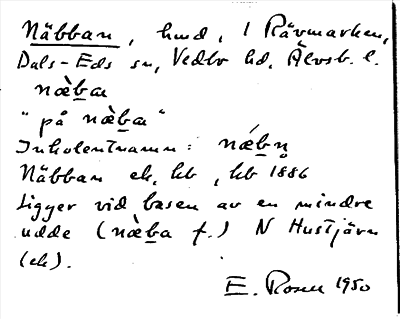 Näbban, hmd, i Rävmarken,
Dals-Eds sn, Vedbo hd, Älvsb. l.
næ̀b̲a
"på næ̀b̲a"
Inkolentnamn: nǽb̲n̥
Näbban ek, hb, kb 1886
Ligger vid basen av en mindre
udde (næ̀b̲a f.) N Hustjärn
(ek).
E. Rosen 1950